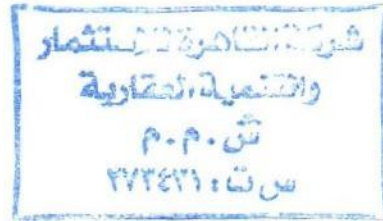 شركة القاهرة للاستثمار
والتنمية العقارية
ش.م.م
س ت : ٢٧٣٤٢١